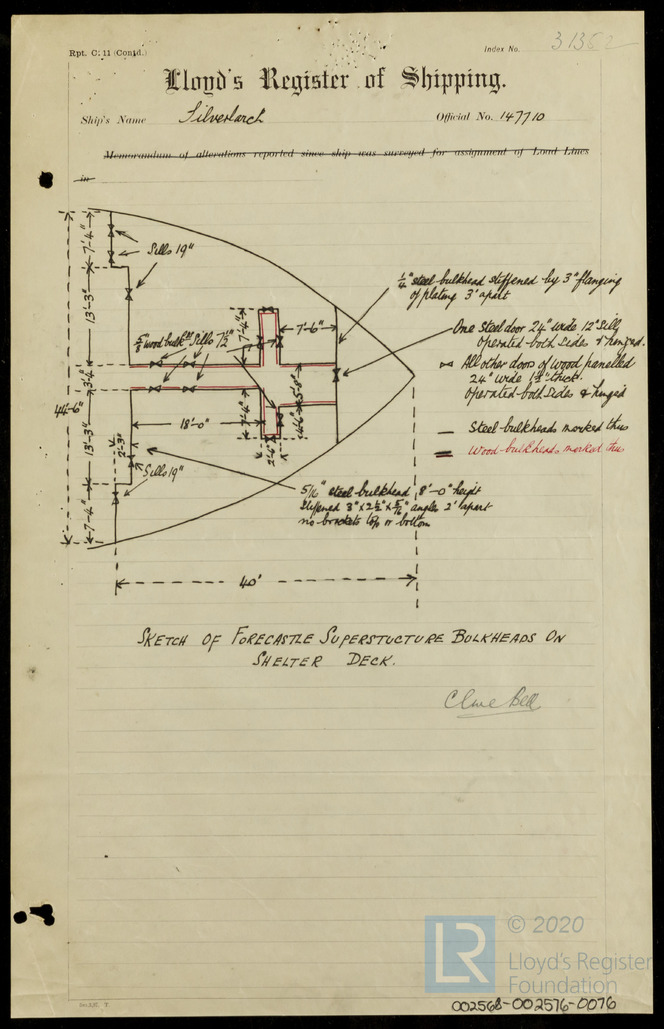 Rpt. C. 11 (Contd.)
Index No. 31362
Lloyd's Register of Shipping.
Ship's Name Silverlarch Official No. 147710
Memorandum of alterations reported since ship was surveyed for assignment of Load Lines
in
7'-4"
Sills 19"
13'-3"
5/8 wood bulkds Sills 7½"
7'-4"
7'-6"
3'-4"
44'-6"
5'-8"
18'-0"
7'-4"
4'-6"
13'-3"
2'-3"
2'-6"
Sills 19"
7'-4"
40'
¼" steel bulkhead stiffened by 3" flanging
of plating 3' apart
One steel door 24" wide 12" sills
operated both sides & hinged.
All other doors of wood panelled
24" wide 1½" thick.
operated both sides & hinged
Steel bulkheads marked thus
Wood bulkheads marked thus
5/16" steel bulkhead 8'-0" height
stiffened 3" x 2½" x 5/16" angles 2' apart
no brackets top or bottom
SKETCH OF FORECASTLE SUPERSTUCTURE BULKHEADS ON
SHELTER DECK.
Clive Bell
© 2020
LR
Lloyd's Register
Foundation
002568-002576-0076